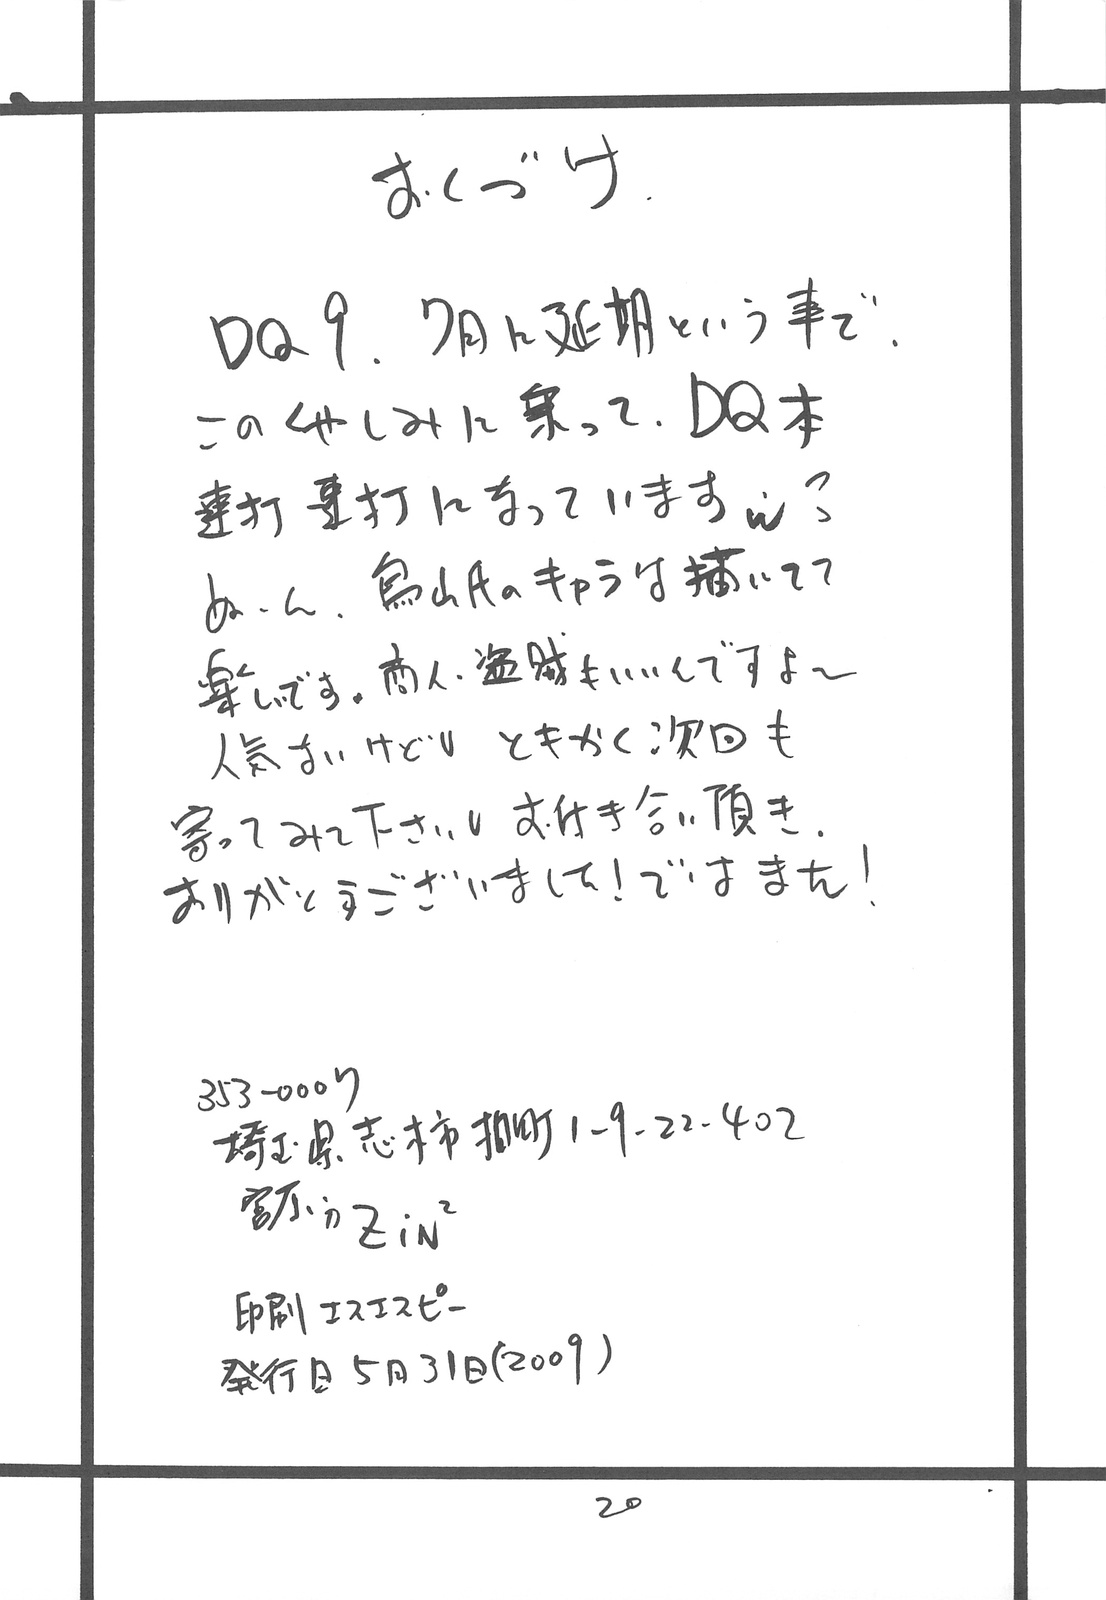 おくづけ.
DQ9. 7月に延期という事で.
このくやしみに乗って. DQ本
連打連打になっていますw?
ぬーん. 鳥山氏のキャラは描いてて
楽しいです。商人・盗賊もいいんですよ〜
人気ないけど ともかく次回も
寄ってみて下さい お付き合い頂き.
ありがとうございました!ではまた!
353-0007
埼玉県志木市柏町1-9-22-402
ZiN²
印刷 エスエスピー
発行日 5月31日(2009)
20